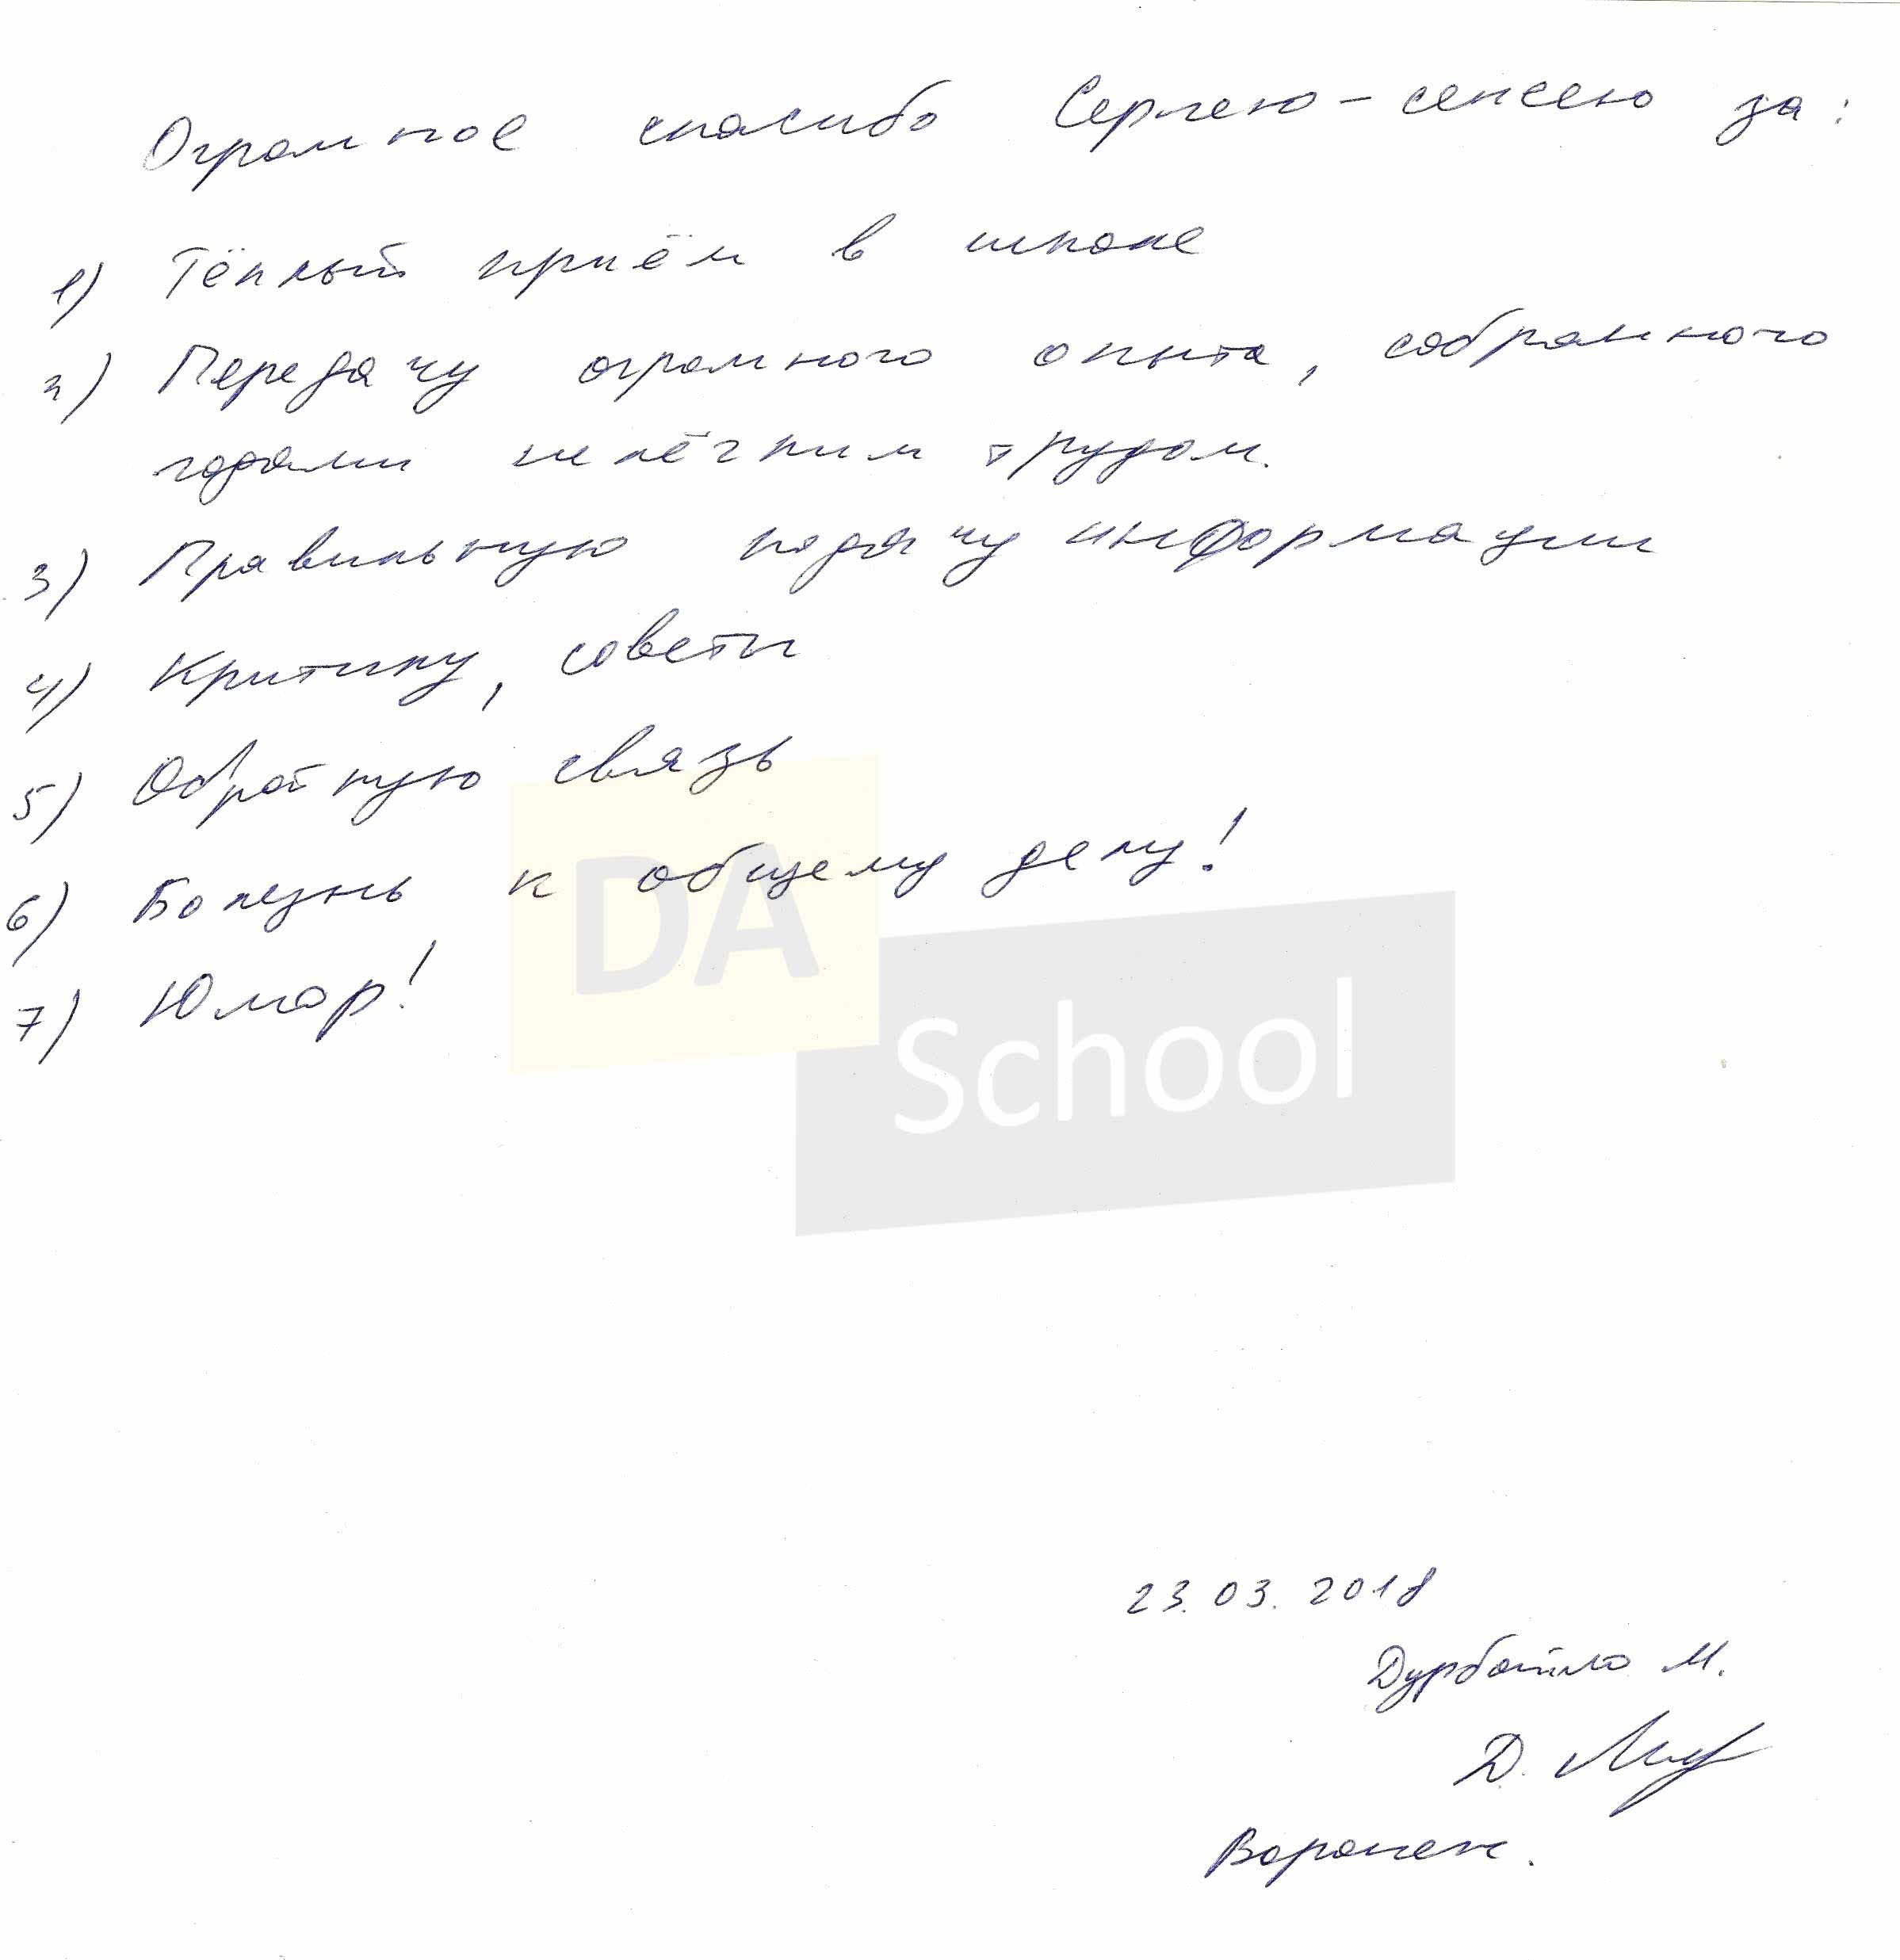 Огромное спасибо Сергею-сенсею за:
1) Тёплый приём в школе
2) Передачу огромного опыта, собранного
годами нелёгким трудом.
3) Правильную подачу информации
4) Критику, советы
5) Обратную связь
6) Болезнь к общему делу!
7) Юмор!
DA
School
23.03.2018
Дурбайло М.
Д.
Воронеж.